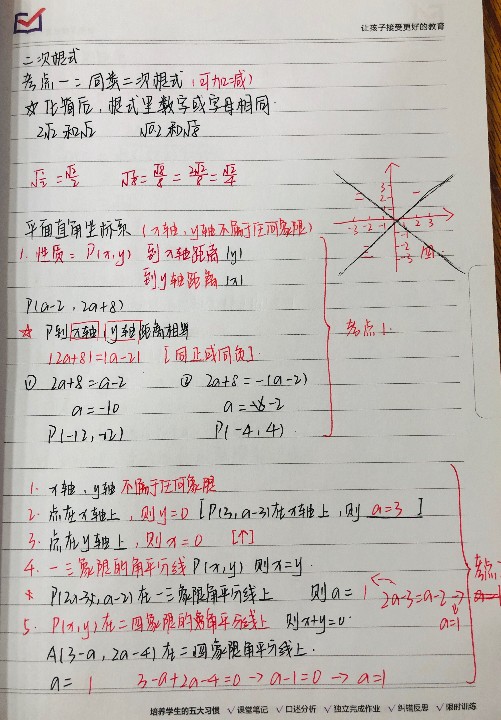 让孩子接受更好的教育
二次根式
考点一:同类二次根式(可加减)
☆ 化简后,根式里数字或字母相同.
2√2 和√2 √0.2 和√8
√½ = √2/2 √⅛ = √8/8 = 2√2/8 = √2/4
平面直角坐标系(x轴,y轴不属于任何象限)
1. 性质: P(x,y) 到x轴距离 |y|
到y轴距离 |x|
P(a-2, 2a+8)
☆ P到x轴,y轴距离相等
|2a+8|=|a-2| [同正或同负]
① 2a+8=a-2 ② 2a+8=-(a-2)
a=-10 a=-2
P(-12,-12) P(-4,4)
考点1.
一 二 三 四
3 2 1
-3 -2 -1 1 2 3
-1 -2 -3
1. x轴,y轴不属于任何象限
2. 点在x轴上,则y=0 [P(3,a-3)在x轴上,则 a=3 ]
3. 点在y轴上,则x=0 [↑]
4. 一三象限的角平分线 P(x,y) 则x=y.
* P(2a-3,a-2)在一三象限角平分线上 则a=1 2a-3=a-2→
a=1
5. P(x,y)在二四象限的角平分线上 则x+y=0.
A(3-a, 2a-4)在二四象限角平分线上.
a= 1 3-a+2a-4=0→a-1=0→a=1
考点
培养学生的五大习惯 √课堂笔记 √口述分析 √独立完成作业 √纠错反思 √限时训练